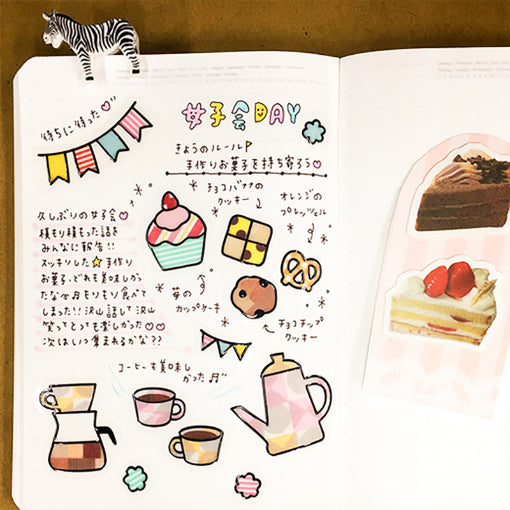 待ちに待った♡"
女子会DAY
きょうのルール
手作りお菓子を持ち寄ろう♡
チョコバナナの
クッキー
オレンジの
プレッツェル
久しぶりの女子会♡
積もり積もった話を
みんなに報告!!
スッキリした★手作り
お菓子、どれも美味しかっ
たな〜♪もりもり食べて
しまった!!沢山話して沢山
笑ってとても楽しかった♡♡
次はいつ集まれるかな??
苺の
カップケーキ
チョコチップ
クッキー
コーヒーも美味し
かった♬"